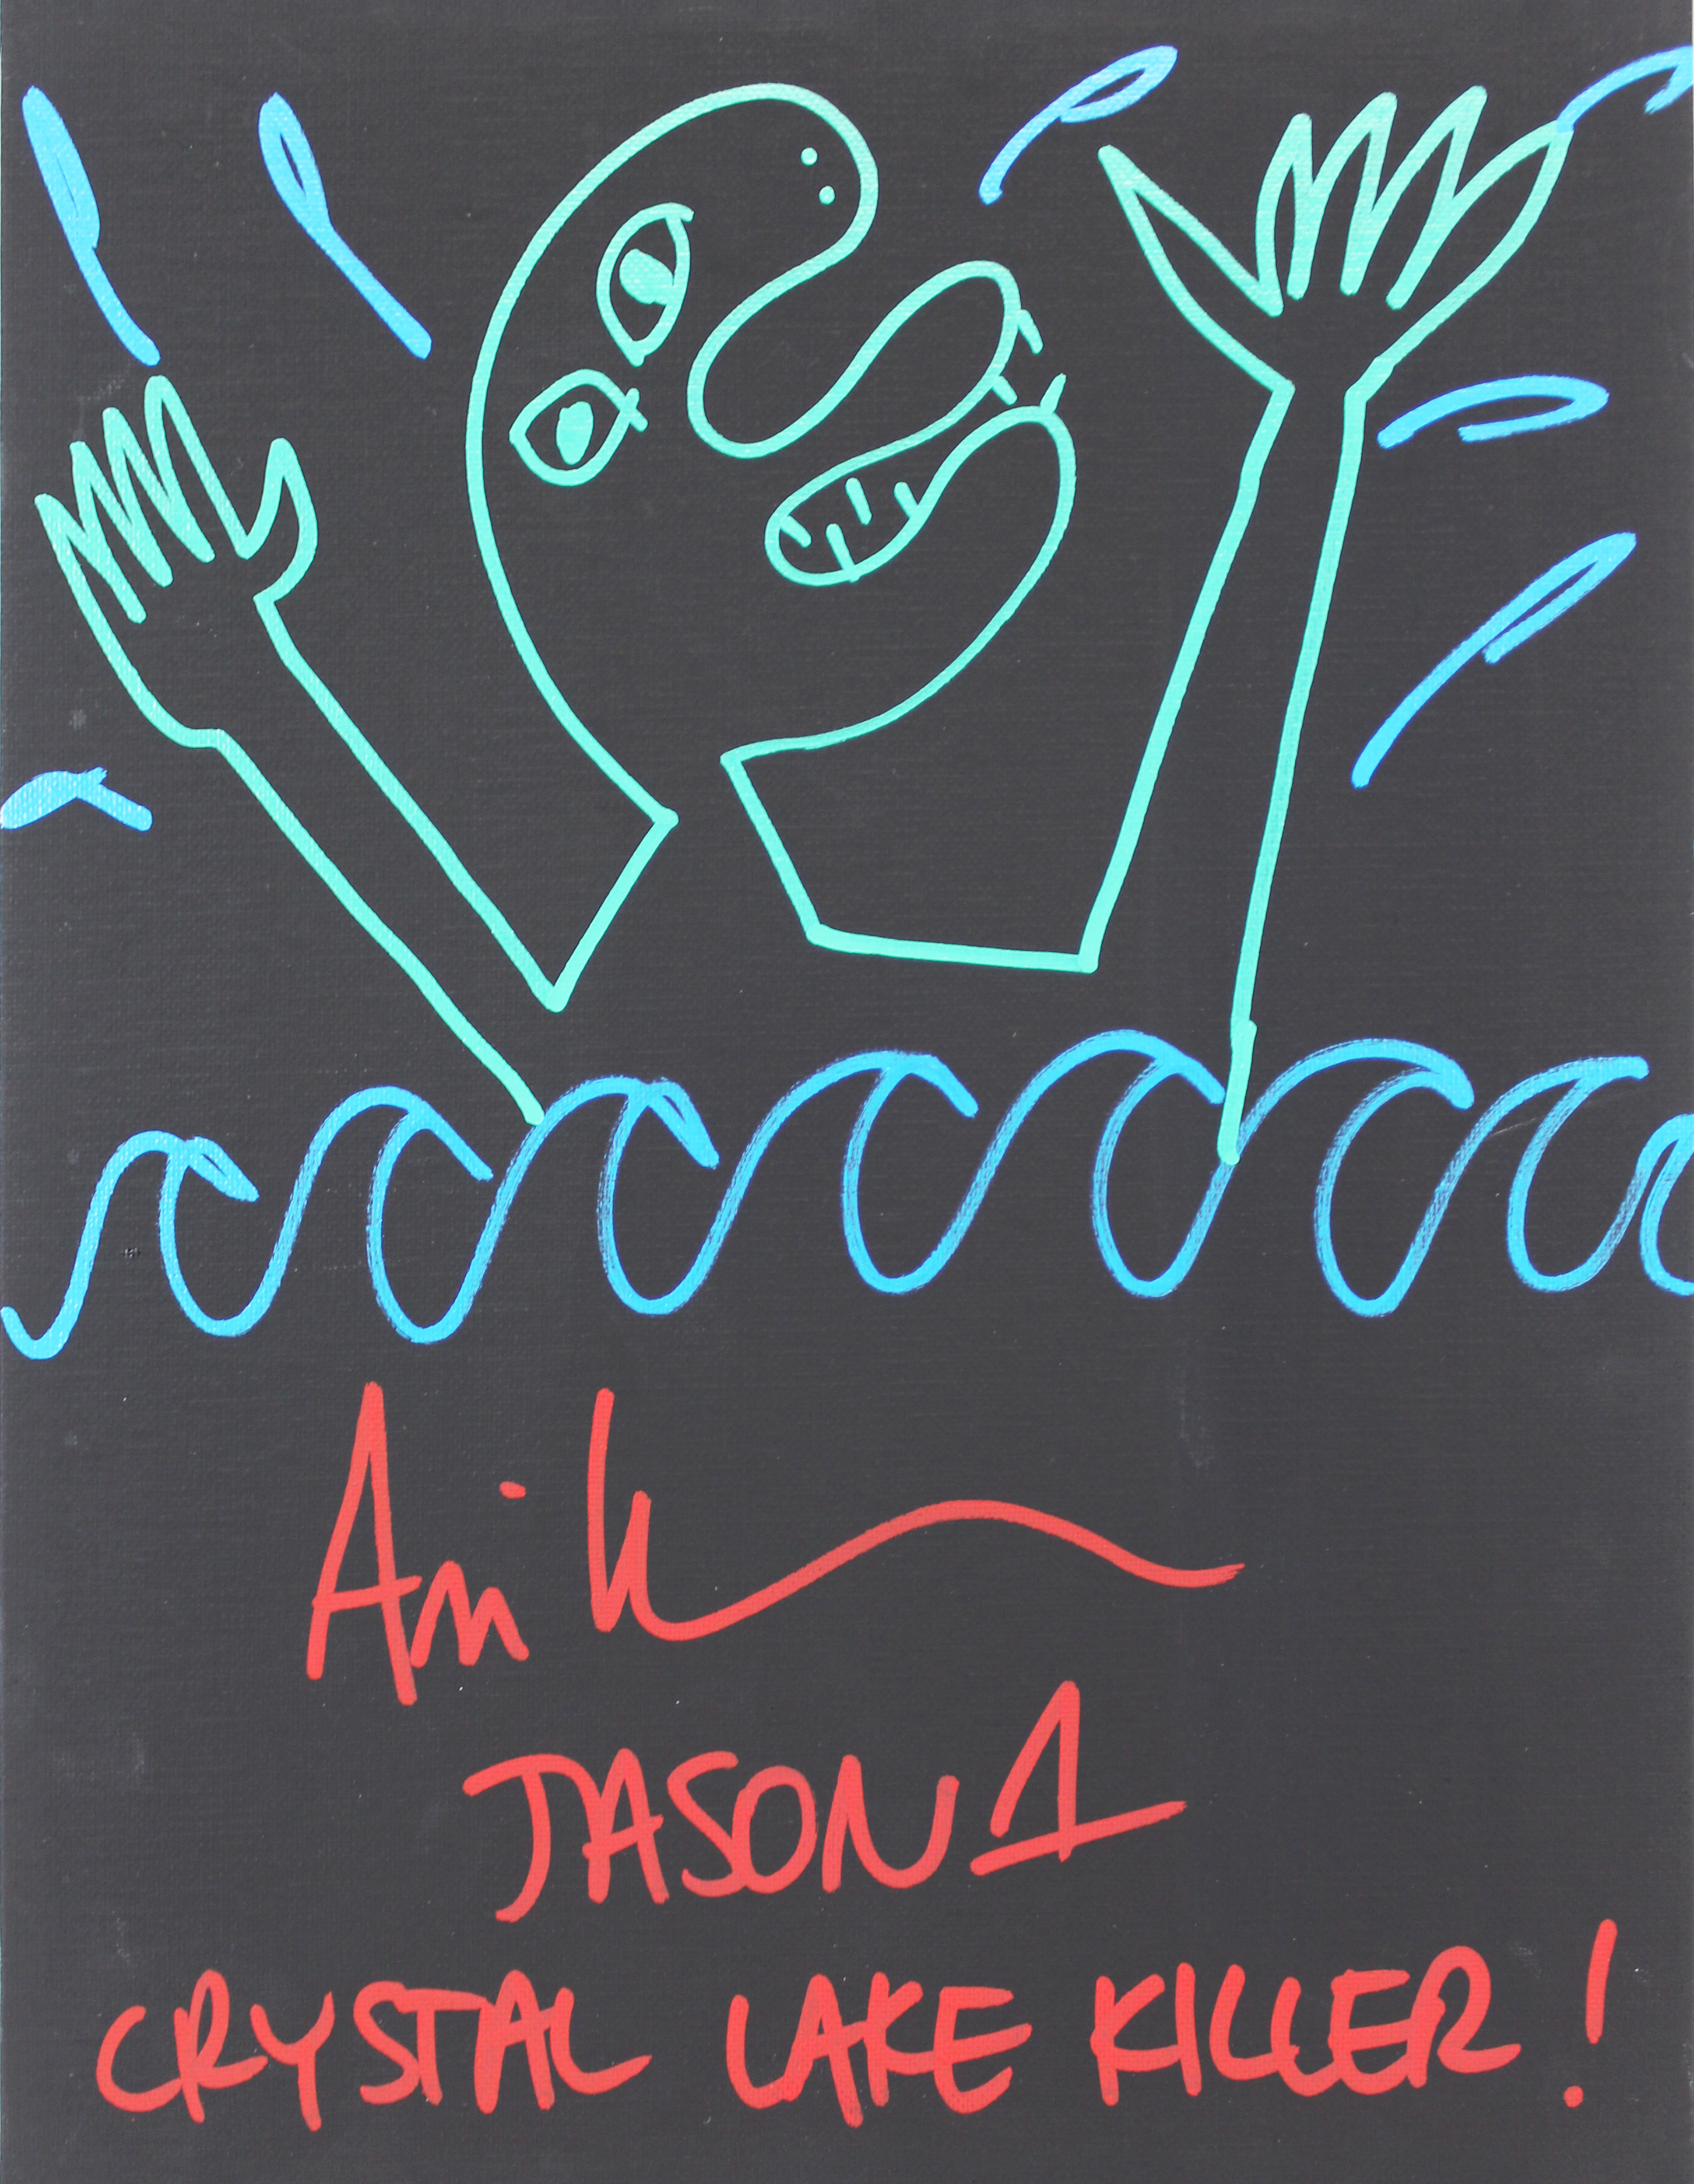 Ari
JASON 1
CRYSTAL LAKE KILLER!